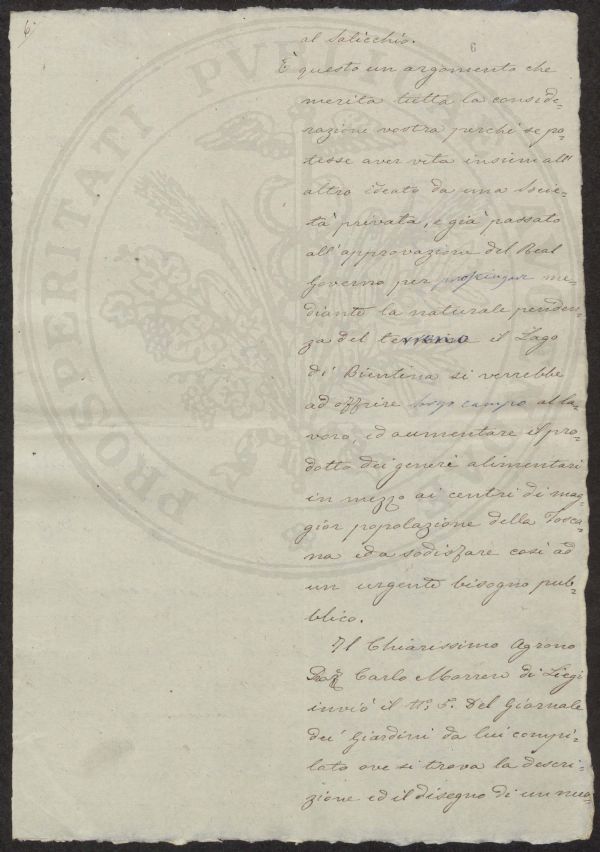 6
6
al Salicchio.
È questo un argomento che
merita tutta la conside=
razione vostra perchè se po=
tesse aver vita insiem all'
altro ideato da una Socie=
tà privata, e già passato
all'approvazione del Real
Governo per prosciugar me=
diante la naturale penden=
za del terreno il Lago
di Bientina si verrebbe
ad offrire largo campo al la=
voro, ed aumentare il pro=
dotto dei generi alimentari
in mezzo ai centri di mag=
gior popolazione della Tosca=
na ed a sodisfare così ad
un urgente bisogno pub=
blico.
Il Chiarissimo Agrono
Carlo Morren di Liegi
inviò il N°. 5. Del Giornale
dei Giardini da lui compi=
lato ove si trova la descri=
zione ed il disegno di un nuo=
PROSPERITATI PVBLICAE